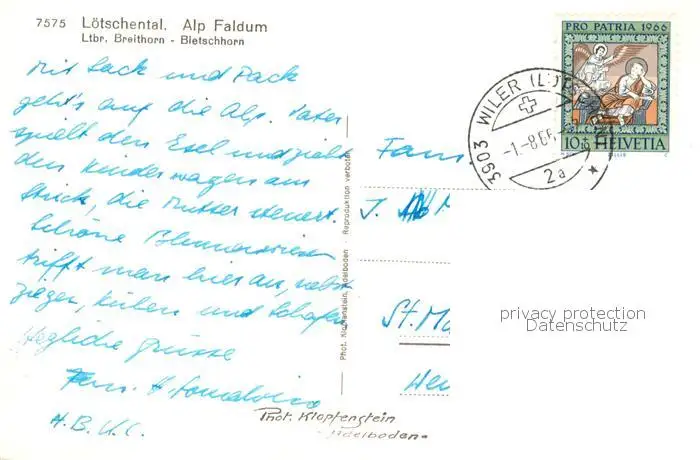 7575 Lötschental. Alp Faldum
Ltbr. Breithorn - Bietschhorn
Mit Sack und Pack
geht's auf die Alp. Vater
spielt den Esel und zieht
den Kinderwagen am
Strick, die Mutter steuert.
Schöne Blumenwiesen
trifft man hier an, nebst
Ziegen, Kühen und Schafen
Herzliche Grüsse
Fam.
H.B.K.C.
Phot. Klopfenstein, Adelboden - Reproduktion verboten
PRO PATRIA 1966
10+5 HELVETIA
3903 WILER (LÖ
-1.-8.66
2a
Fam
J.
St. Ma
We
privacy protection
Datenschutz
Phot. Klopfenstein
- Adelboden -